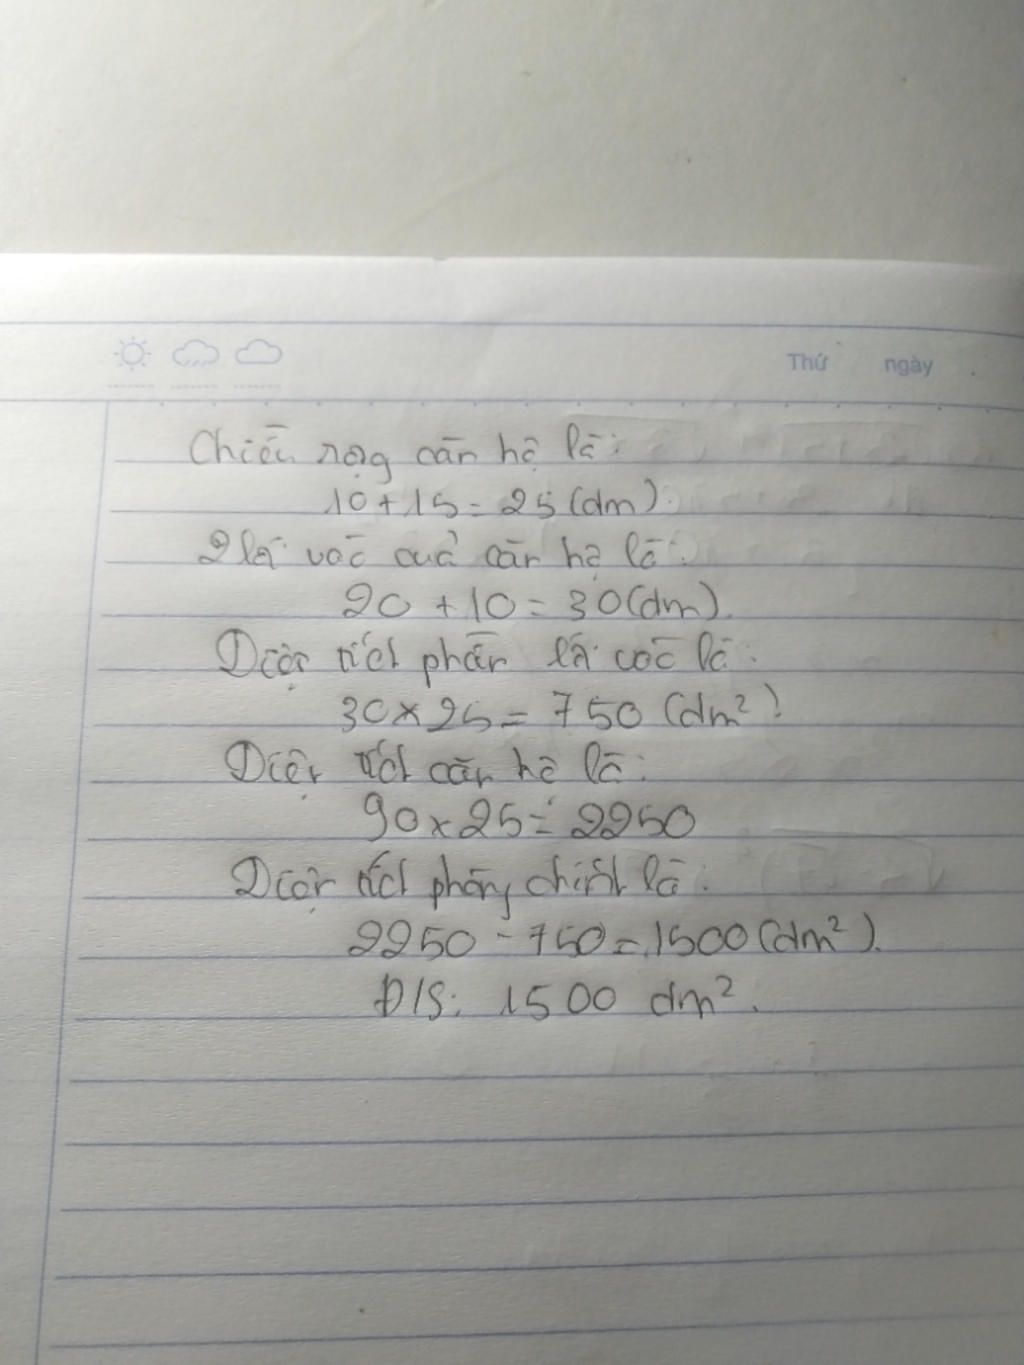 Thứ ngày
Chiều rọng căn hộ là:
10 + 15 = 25 (dm).
2 lối vào của căn hộ là:
20 + 10 = 30 (dm).
Diện tích phần lối vào là:
30 x 25 = 750 (dm²)
Diện tích căn hộ là:
90 x 25 = 2250
Diện tích phòng chính là:
2250 - 750 = 1500 (dm²).
Đ/S: 1500 dm².